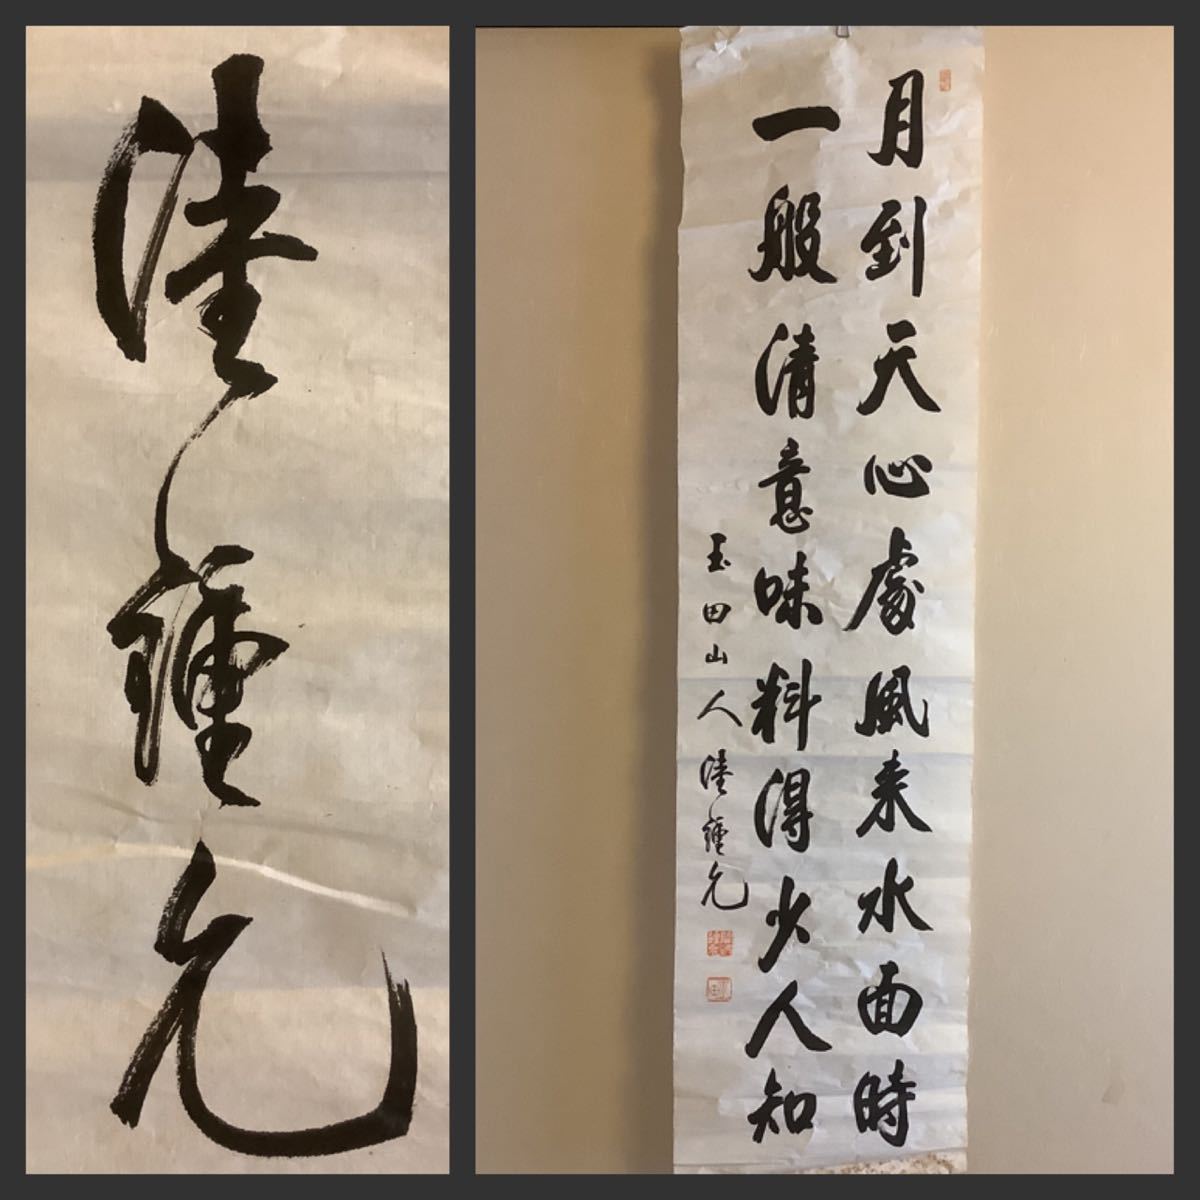 月到天心處風来水面時
一般清意味料得少人知
玉田山人陸鍾允
陸鍾允